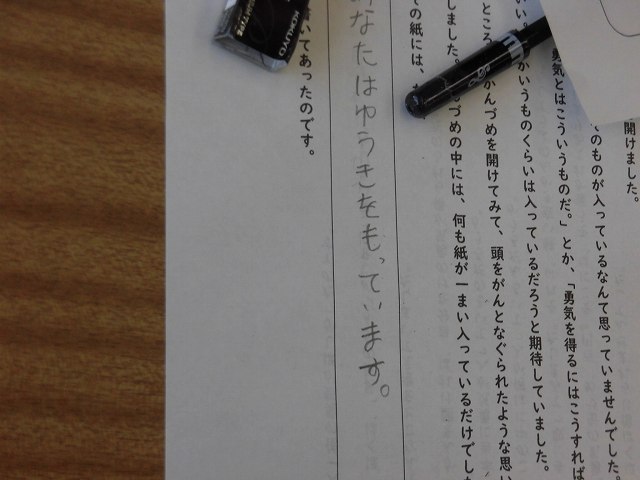 開けました。
てのものが入っているなんて思っていませんでした。
勇気とはこういうものだ。」とか、「勇気を得るにはこうすれば
いい
かいうものくらいは入っているだろうと期待していました。
ところ
かんづめを開けてみて、頭をがんとなぐられたような思い
しました。
づめの中には、何も紙が一まい入っているだけでした
の紙には、
あなたはゆうきをもっています。
いてあったのです。
KOKUYO